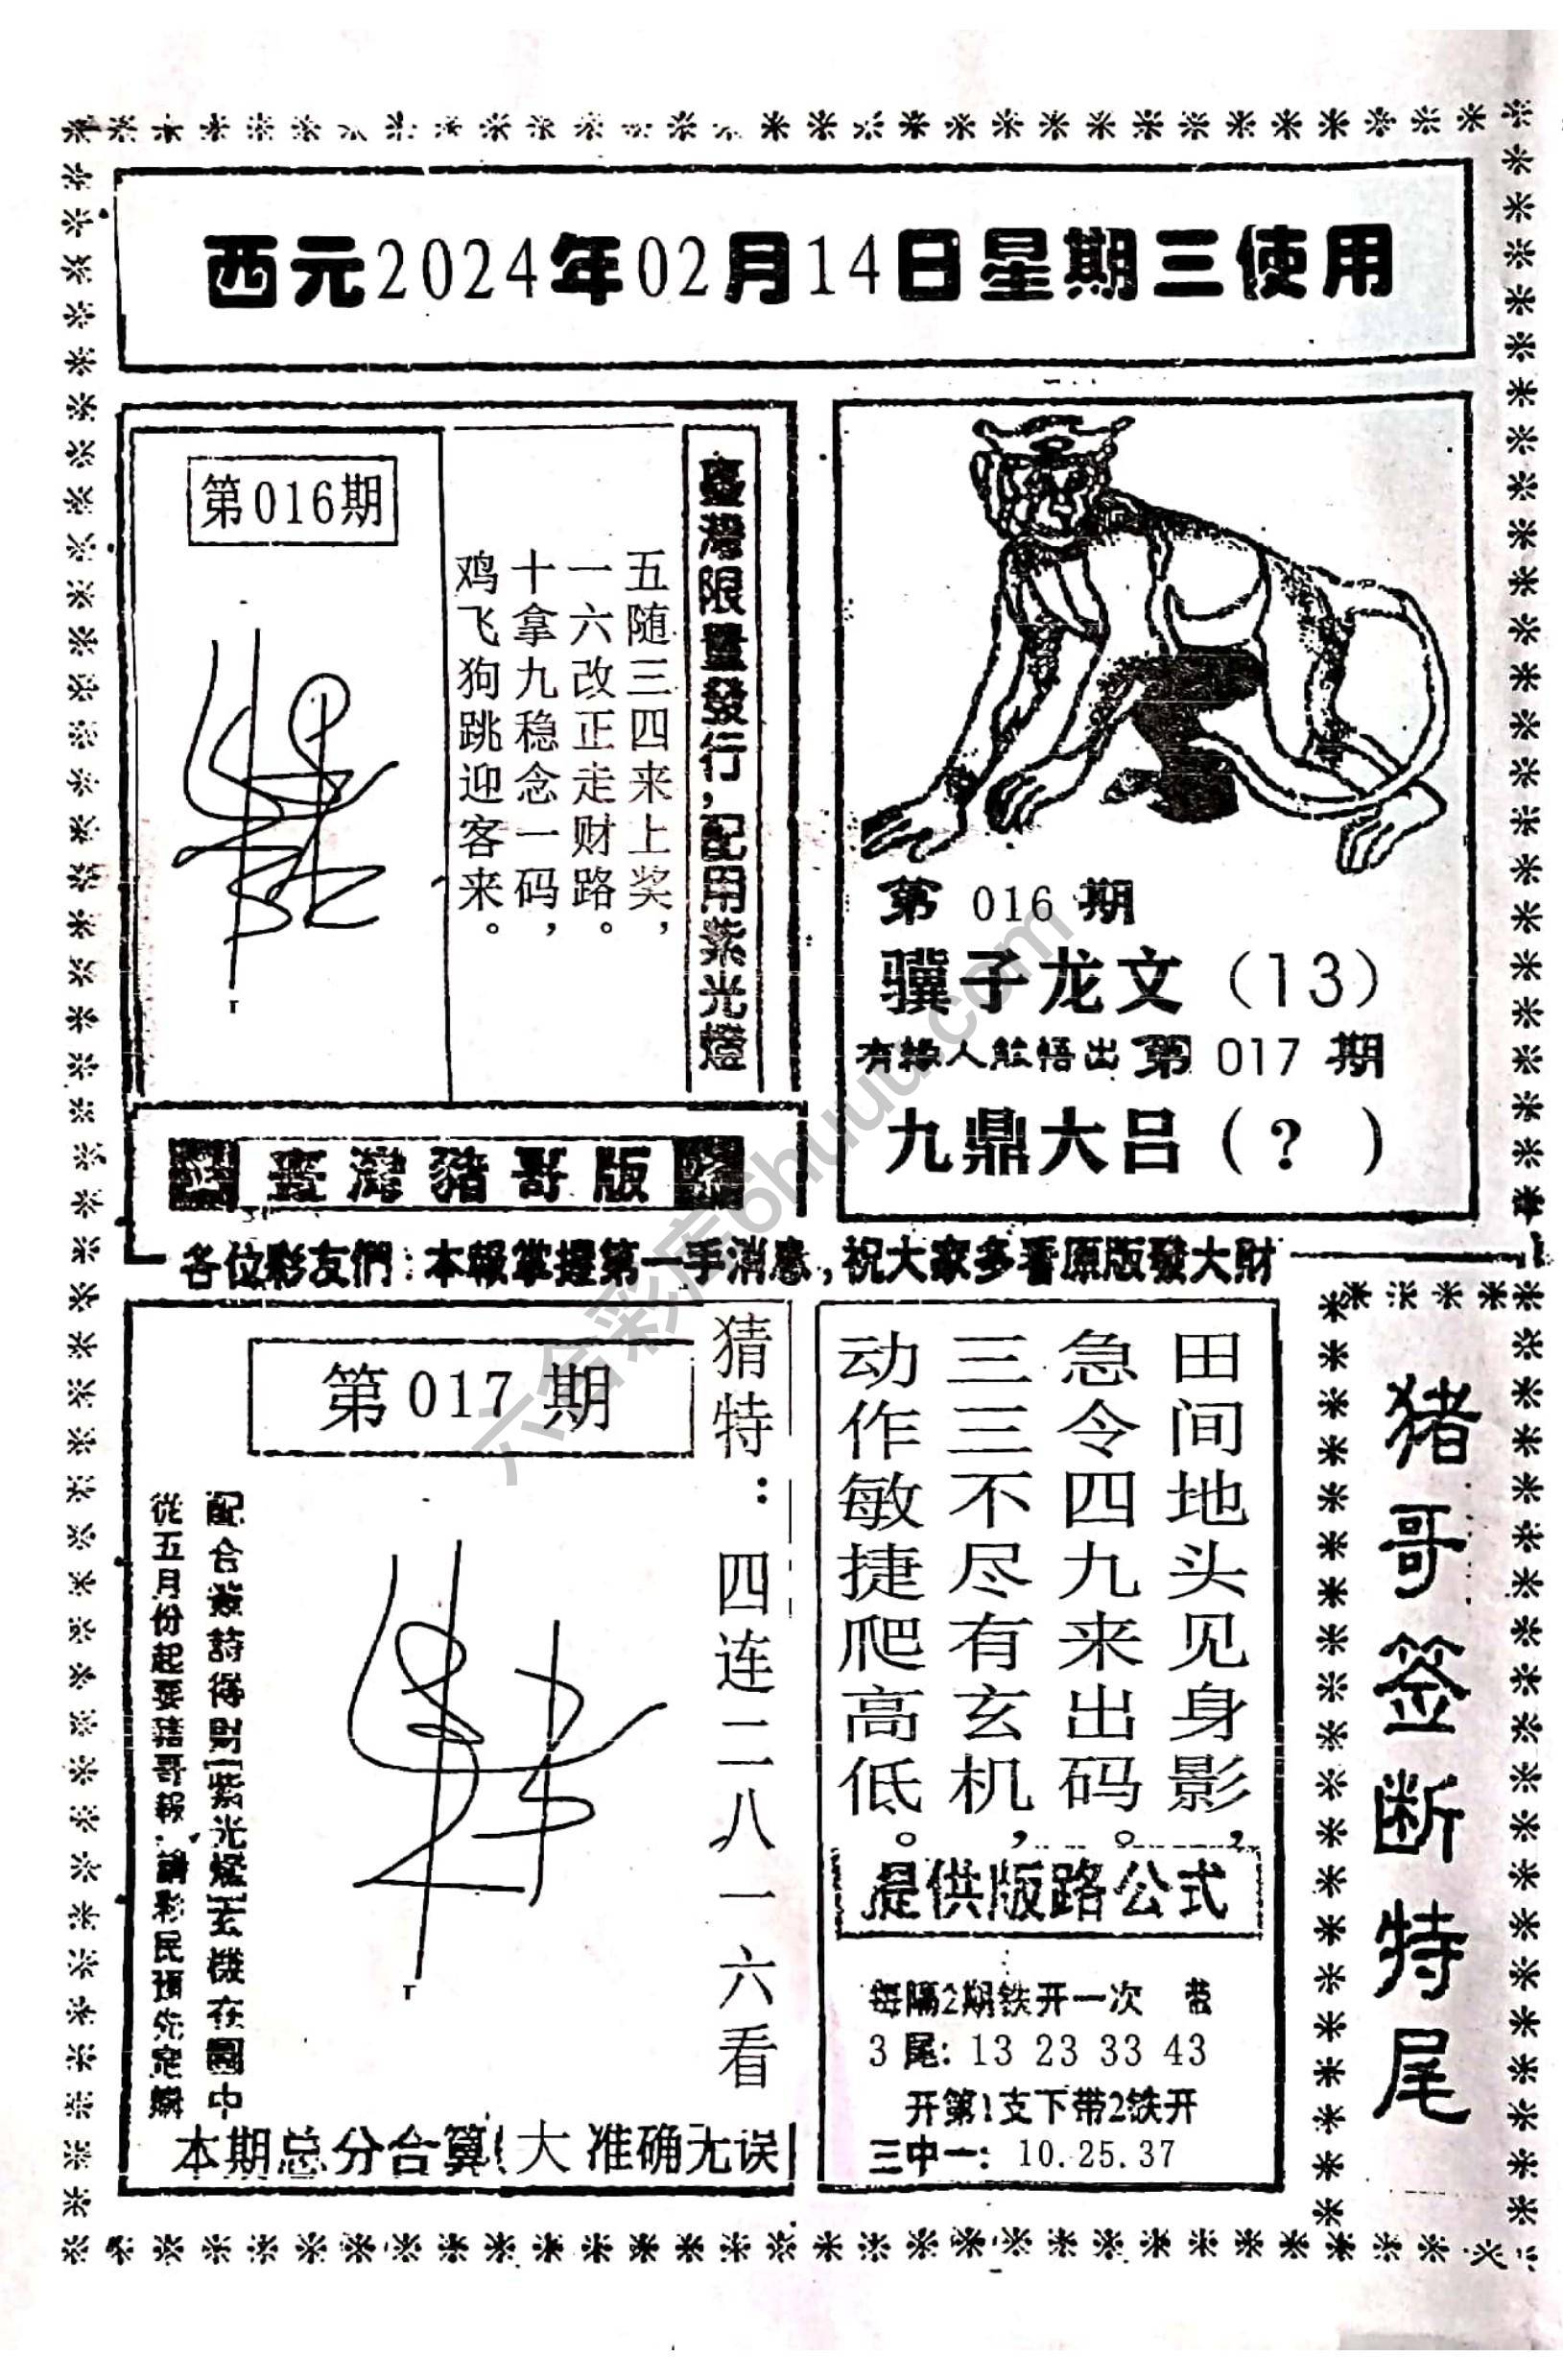 西元2024年02月14日星期三使用
第016期
臺灣限量發行，配用紫光燈
五随三四来上奖，
一六改正走财路。
十拿九稳念一码，
鸡飞狗跳迎客来。
臺灣豬哥版
第 016 期
骥子龙文（13）
有缘人能悟出 第 017 期
九鼎大吕（？）
各位彩友們：本報掌握第一手消息，祝大家多看原版發大財
第017期
猜特：四连二八一六看
配合籤詩得財[紫光燈]玄機在圖中
從五月份起要豬哥報，請彩民預先定購
本期总分合算（大 准确无误
田间地头见身影，
急令四九来出码。
三三不尽有玄机，
动作敏捷爬高低。
提供版路公式
每隔2期铁开一次 带
3尾：13 23 33 43
开第1支下带2铁开
三中一：10.25.37
猪哥签断特尾
六合彩库6huuu.com